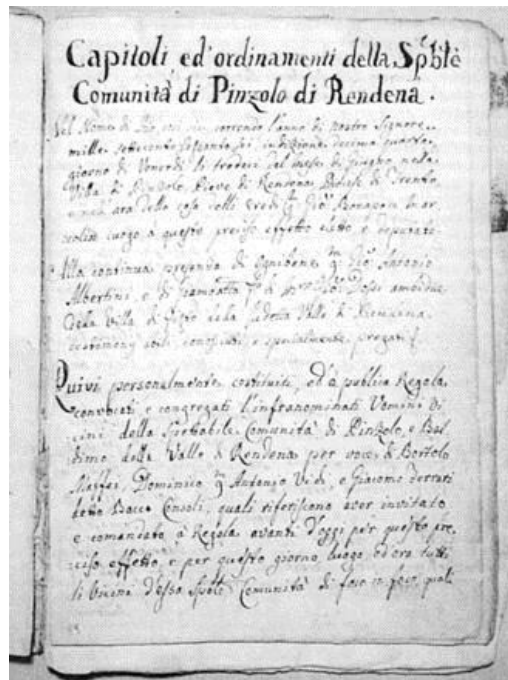 Capitoli ed' ordinamenti della Spble
Comunità di Pinzolo di Rendena.
Nel Nome di Dio, correndo l'anno di nostro Signore
mille settecento sessanta sei indizione decima quarta
giorno di Venerdì li tredeci del mese di Giugno, nella
Villa di Pinzolo, Pieve di Rendena, Diocesi di Trento,
e nell' ara della casa delli Eredi
luogo a questo preciso effetto eletto, e deputato
Alla continua presenza di Ognibene Antonio
Albertini, e di amendue
della Villa di della sudetta Valle di Rendena
testimonj noti, e specialmente pregati
Quivi personalmente costituiti, ed' a publica Regola
convocati, e congregati l'infranominati Uomini Vi
cini della Spettabile Comunità di Pinzolo, e Bal
dino della Valle di Rendena per voce di Bortolo
Maffei, Dominico q Antonio Vidi, e Giacomo Ferrari
detto Bacca Consoli, quali riferiscono aver invitato
e comandato à Regola avanti d'oggi per questo pre
ciso effetto e per questo giorno, luogo, ed' ora tutti
li Vicini d'essa Spble Comunità di foco in foco, quali